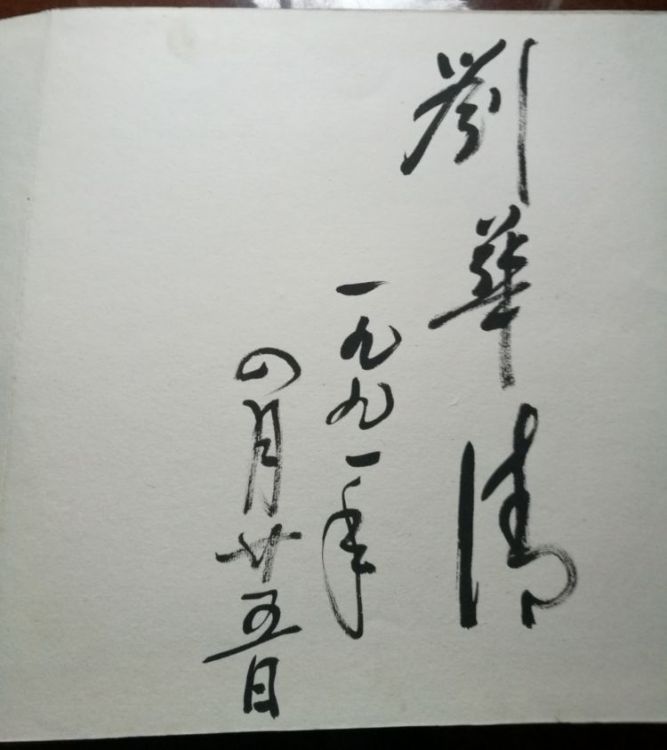 劉華清
一九九一年
四月廿五日